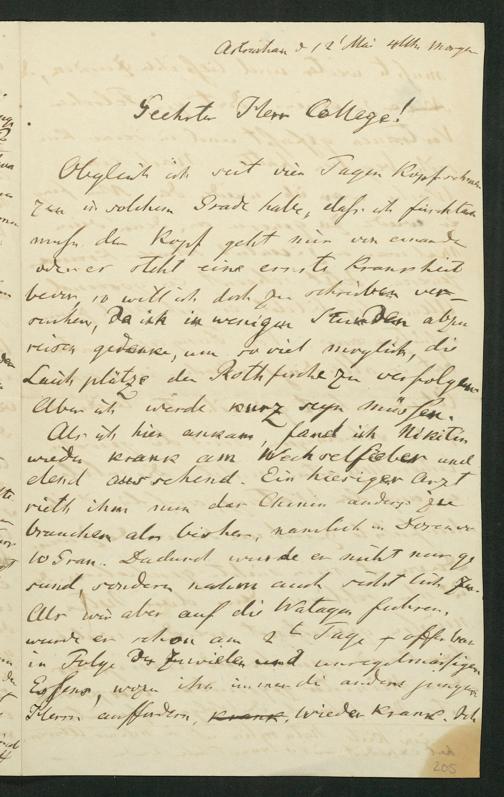 Astrachan d. 12' Mai 4 Uhr Morgen
Geehrter Herr College!
Obgleich ich seit vier Tagen Kopfschmer
zen in solchem Grade habe, dafs ich fürchten
mufs, der Kopf geht mir von einander
oder er steht eine ernste Krankheit
bevor, so will ich doch zu schreiben ver-
suchen, da ich in wenigen Stunden abzu
reisen gedenke, um so viel möglich, die
Laichplätze der Rothfische zu verfolgen.
Aber ich werde kurz seyn müssen.
Als ich hier ankam, fand ich Nikitin
wieder krank am Wechselfieber und
elend aussehend. Ein hiesiger Arzt
rieth ihm nun das Chinin anders zu
brauchen als bisher, nämlich in Dosen v.
10 Gran. Dadurch wurde er nicht nur ge
sund sondern nahm auch sichtlich zu.
Als wir aber auf die Watagen fuhren,
wurde er schon am 2t Tage offenbar
in Folge des zuvielen und unregelmässigen
Essens, wozu ihn immer die andern jungen
Herrn auffordern, wieder krank. Ich
205